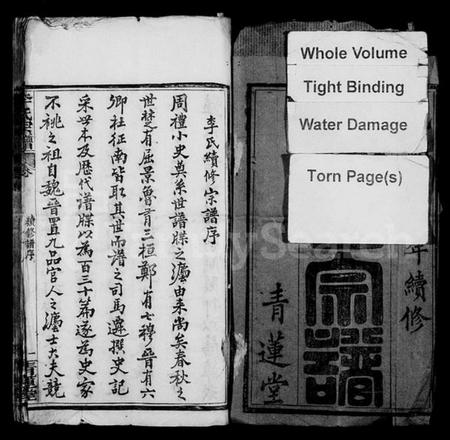 Whole Volume
Tight Binding
Water Damage
Torn Page(s)
年續修
宗譜
青蓮堂
李氏續修宗譜序
周禮小史奠系世譜牒之濫由来尚矣春秋之
世楚有屈景魯有三桓鄭有七穆晉有六
卿杜征南皆取其世而譜之司馬遷撰史記
采世本及歷代譜牒以為百三十篇遂為史家
不祧之祖自魏晉置九品官人之濫士大夫競
續修譜序
FamilySearch